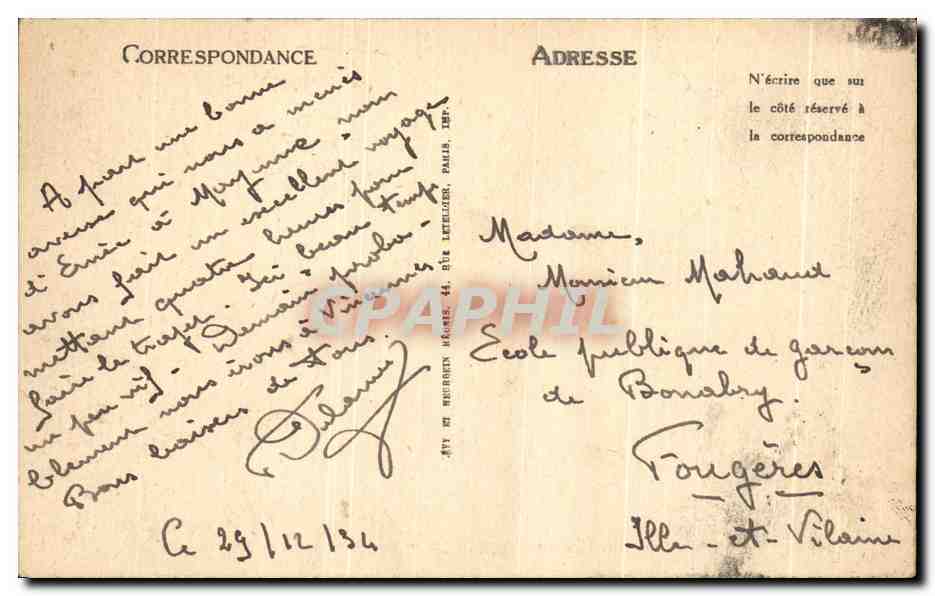 CORRESPONDANCE
A part une bonne
averse qui nous a menés
d'Ernée à Mayenne nous
avons fait un excellent voyage
mettant quatre heures pour
faire le trajet. Ici beau temps
un peu vif. Demain proba-
blement nous irons à Vincennes
Bons baisers de tous.
Le 29/12/34
LÉVY ET NEURDEIN RÉUNIS, 44, RUE LETELLIER, PARIS, IMP.
ADRESSE
N'écrire que sur
le côté réservé à
la correspondance
Madame,
Monsieur Mahaud
Ecole publique de garçons
de Bonabry.
Fougères
Ille-et-Vilaine
CPAPHIL